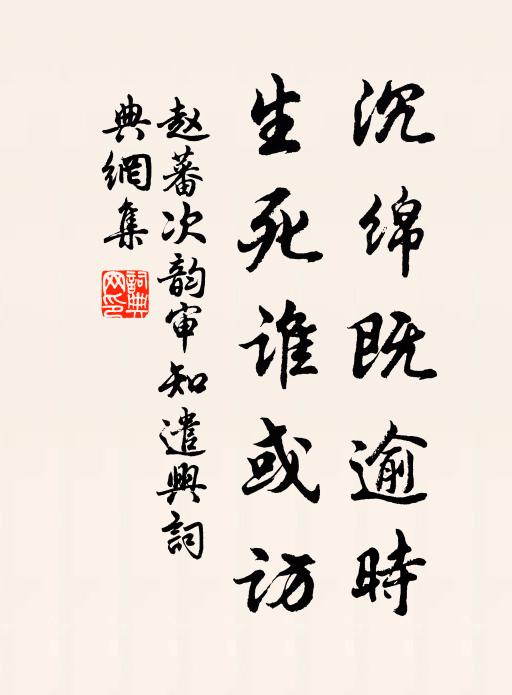 沉绵既逾時
生死谁或访
赵蕃次韵审知遣興詞
典網集
詞典
网印